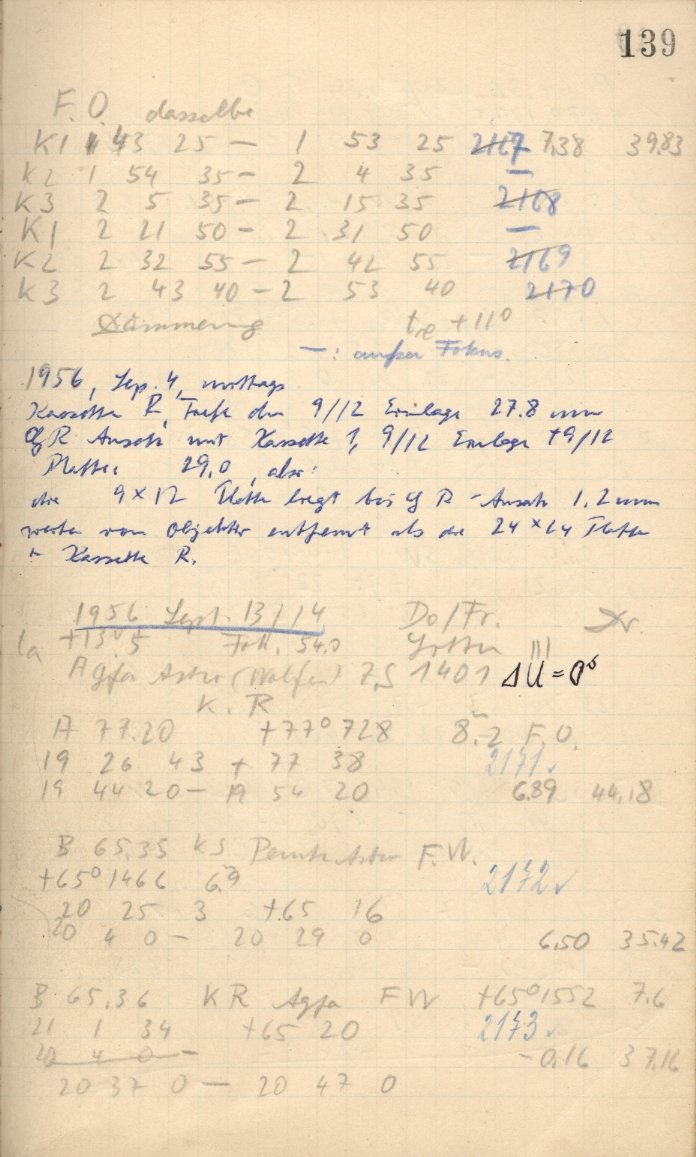 139
F.O. dasselbe
K1 1 43 25 — 1 53 25 2167 7.38 39.83
K2 1 54 35 — 2 4 35 —
K3 2 5 35 — 2 15 35 2168
K1 2 21 50 — 2 31 50 —
K2 2 32 55 — 2 42 55 2169
K3 2 43 40 — 2 53 40 2170
Dämmerung tre +11°
—: außer Fokus.
1956, Sep. 4, mittags
Kassette R, Tiefe der 9/12 Einlage 27.8 mm
R Ansatz mit Kassette 1, 9/12 Einlage + 9/12
Platte: 29.0, also:
die 9 × 12 Platte liegt bei R-Ansatz 1.2 mm
weiter vom Objektiv entfernt als die 24 × 24 Platte
in Kassette R.
1956 Sept. 13/14 Do/Fr.
+13°.5 Fok. 54.0
Agfa Astro (Wolfen) ZS 1401 ΔU = 0s
K. R
A 77.20 +77°728 8.2 F.O.
19 26 43 + 77 38 2171 ✓
19 44 20 — 19 54 20 6.89 44.18
B 65.35 KS Astro F.W.
+65°1466 6.9 2172 ✓
20 25 3 +65 16
20 4 0 — 20 29 0 6.50 35.42
B 65.36 KR Agfa FW +65°1552 7.6
21 1 34 +65 20 2173 ✓
20 4 0 — -0.16 37.16
20 37 0 — 20 47 0